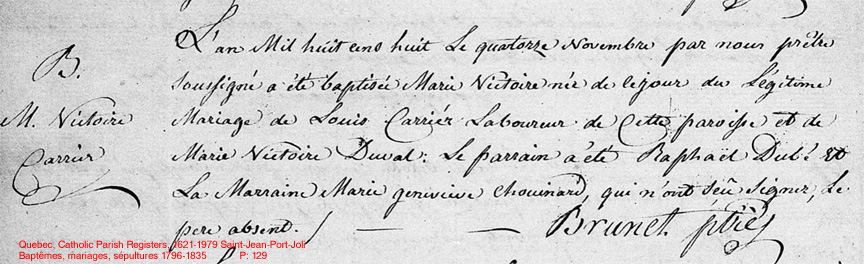 L'an Mil huit cens huit Le quatorze Novembre par nous prêtre
B.
soussigné a été baptisée Marie Victoire née de ce jour du Légitime
M. Victoire
Mariage de Louis Carrier Laboureur de Cette paroisse et de
Carrier
Marie Victoire Duval. Le parrain a été Raphaël Dubé et
La Marraine Marie genevieve Chouinard, qui n'ont sçu signer, Le
pere absent. Brunet ptre
Quebec, Catholic Parish Registers, 1621-1979 Saint-Jean-Port-Joli
Baptêmes, mariages, sépultures 1796-1835 P: 129